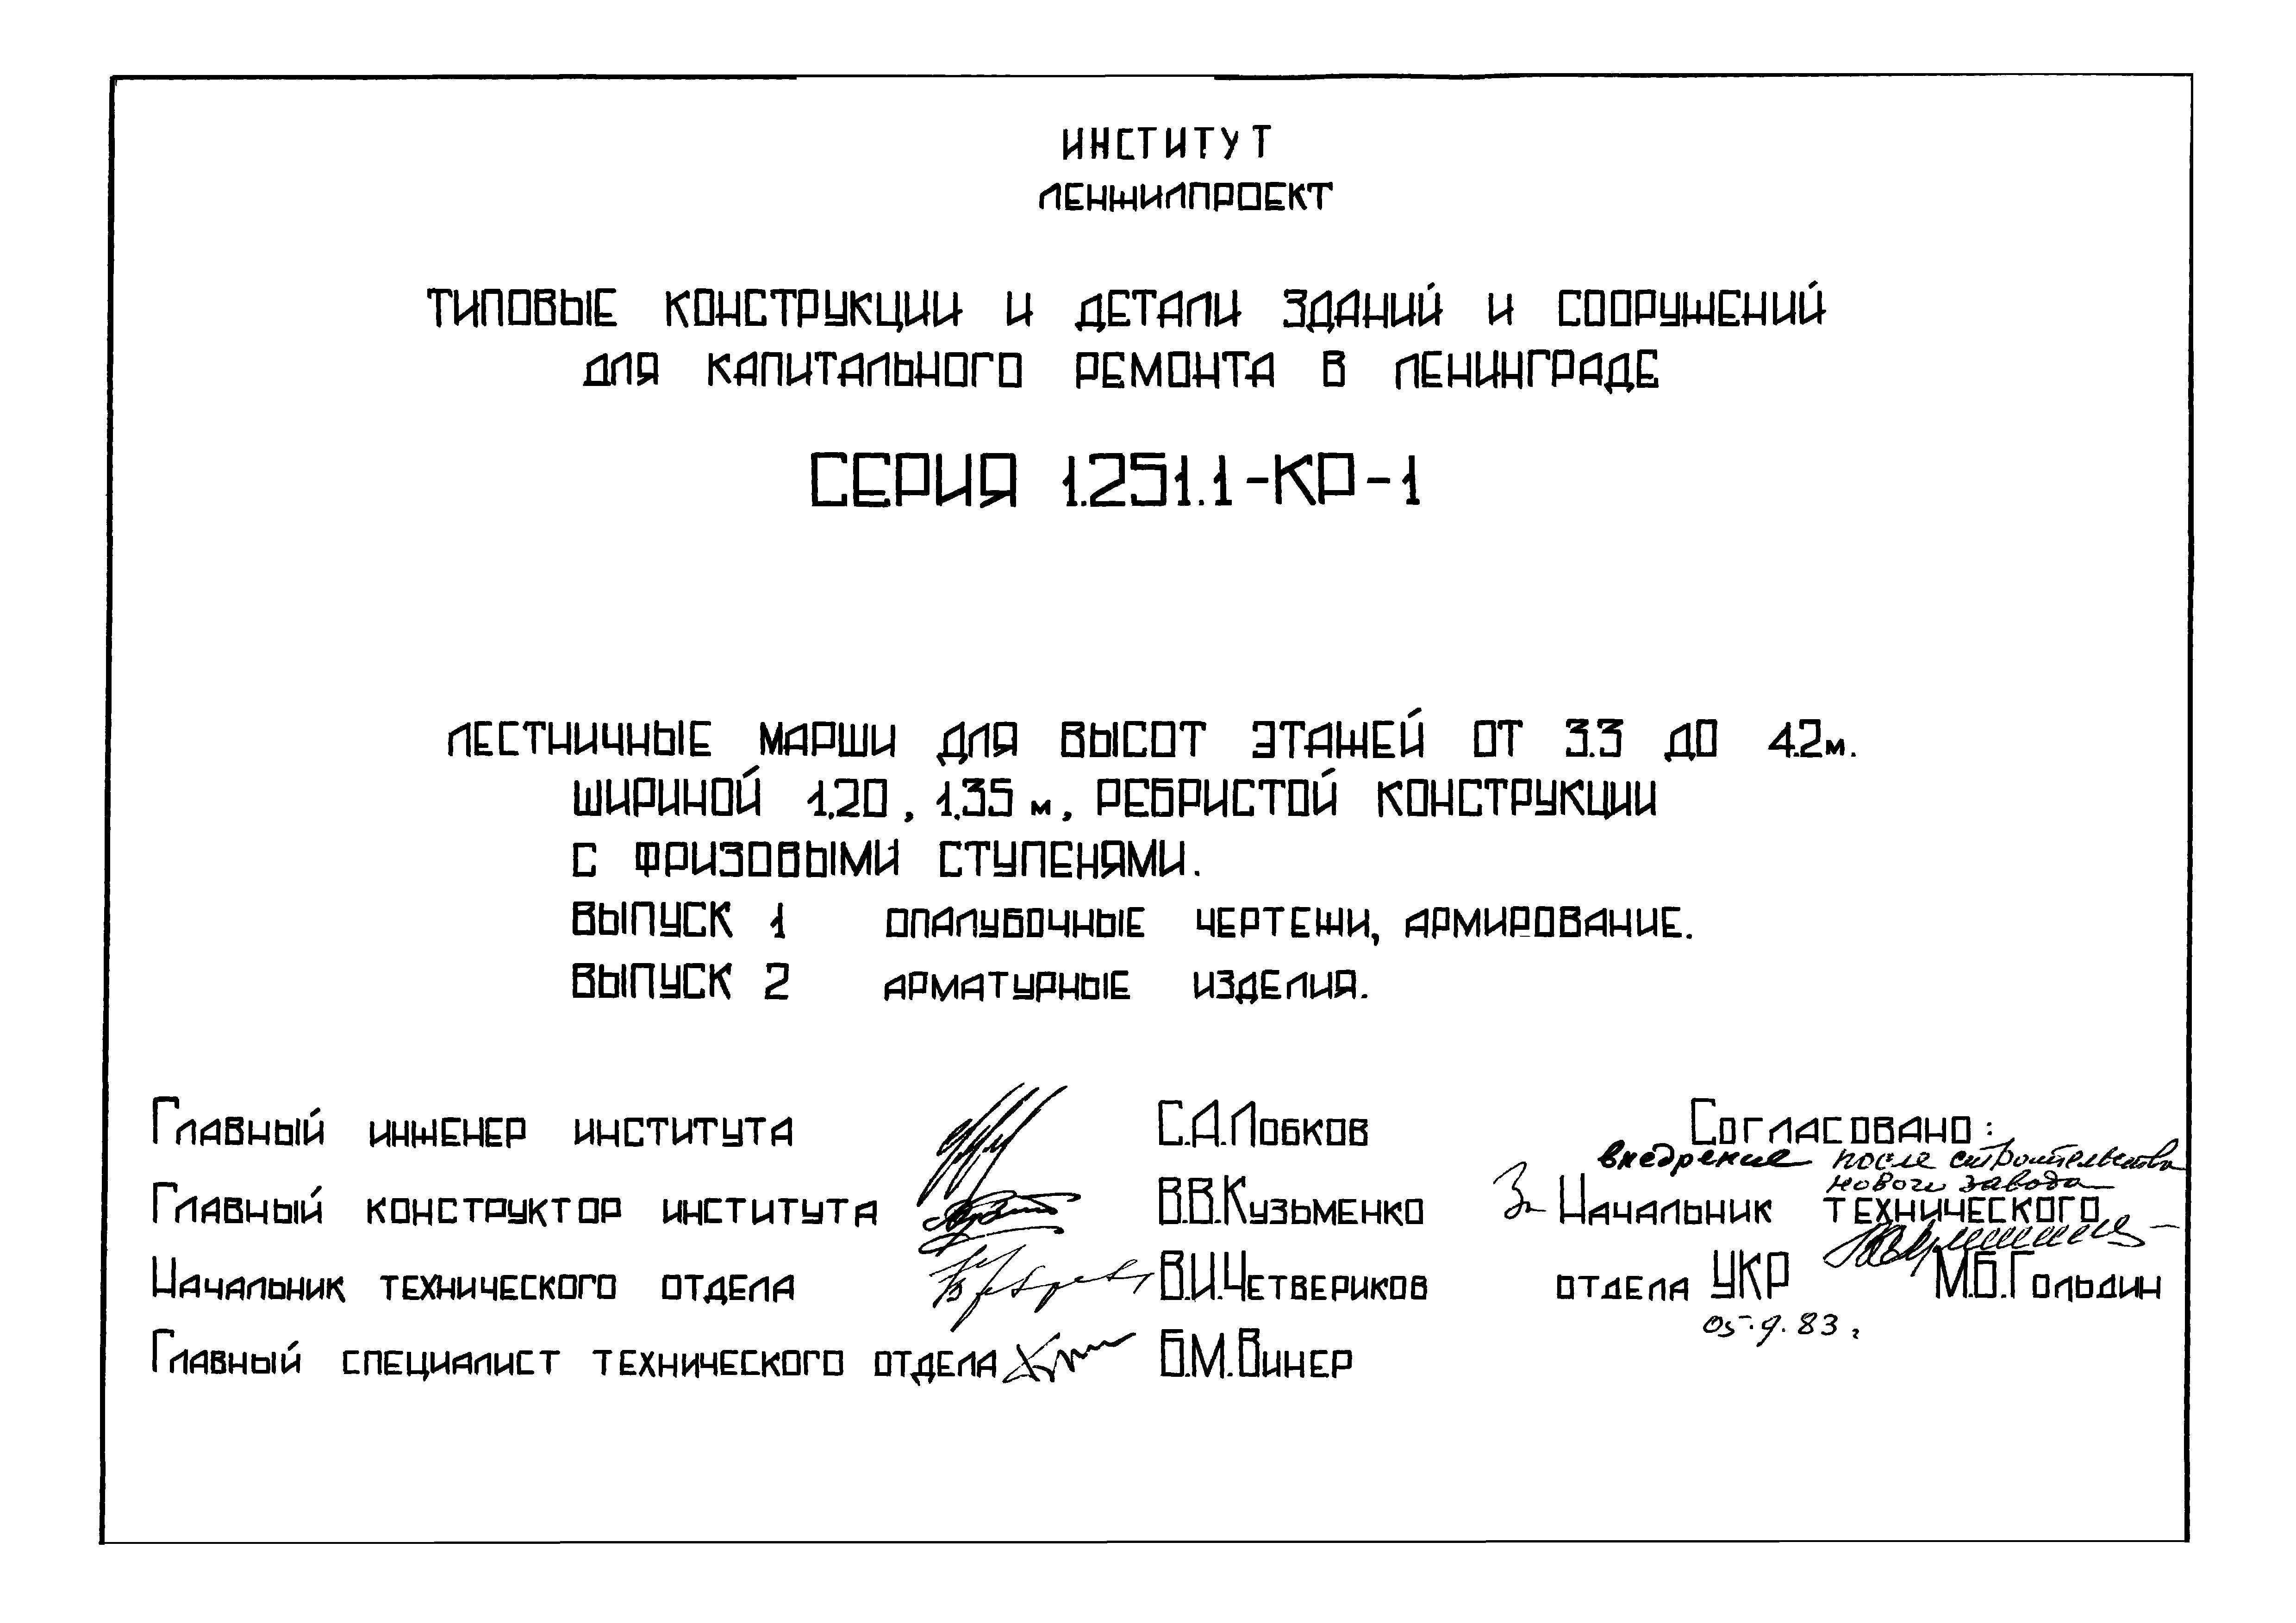 ИНСТИТУТ
ЛЕНЖИЛПРОЕКТ
ТИПОВЫЕ КОНСТРУКЦИИ И ДЕТАЛИ ЗДАНИЙ И СООРУЖЕНИЙ
ДЛЯ КАПИТАЛЬНОГО РЕМОНТА В ЛЕНИНГРАДЕ
СЕРИЯ 1.251.1-КР-1
ЛЕСТНИЧНЫЕ МАРШИ ДЛЯ ВЫСОТ ЭТАЖЕЙ ОТ 3.3 ДО 4.2м.
ШИРИНОЙ 1.20, 1.35 м, РЕБРИСТОЙ КОНСТРУКЦИИ
С ФРИЗОВЫМИ СТУПЕНЯМИ.
ВЫПУСК 1 ОПАЛУБОЧНЫЕ ЧЕРТЕЖИ, АРМИРОВАНИЕ.
ВЫПУСК 2 АРМАТУРНЫЕ ИЗДЕЛИЯ.
ГЛАВНЫЙ ИНЖЕНЕР ИНСТИТУТА С.А.ЛОБКОВ
ГЛАВНЫЙ КОНСТРУКТОР ИНСТИТУТА В.В.КУЗЬМЕНКО
НАЧАЛЬНИК ТЕХНИЧЕСКОГО ОТДЕЛА В.И.ЧЕТВЕРИКОВ
ГЛАВНЫЙ СПЕЦИАЛИСТ ТЕХНИЧЕСКОГО ОТДЕЛА Б.М.ВИНЕР
СОГЛАСОВАНО:
внедрение после строительства
нового завода
За НАЧАЛЬНИК ТЕХНИЧЕСКОГО
ОТДЕЛА УКР М.Б.ГОЛЬДИН
05.9.83 г